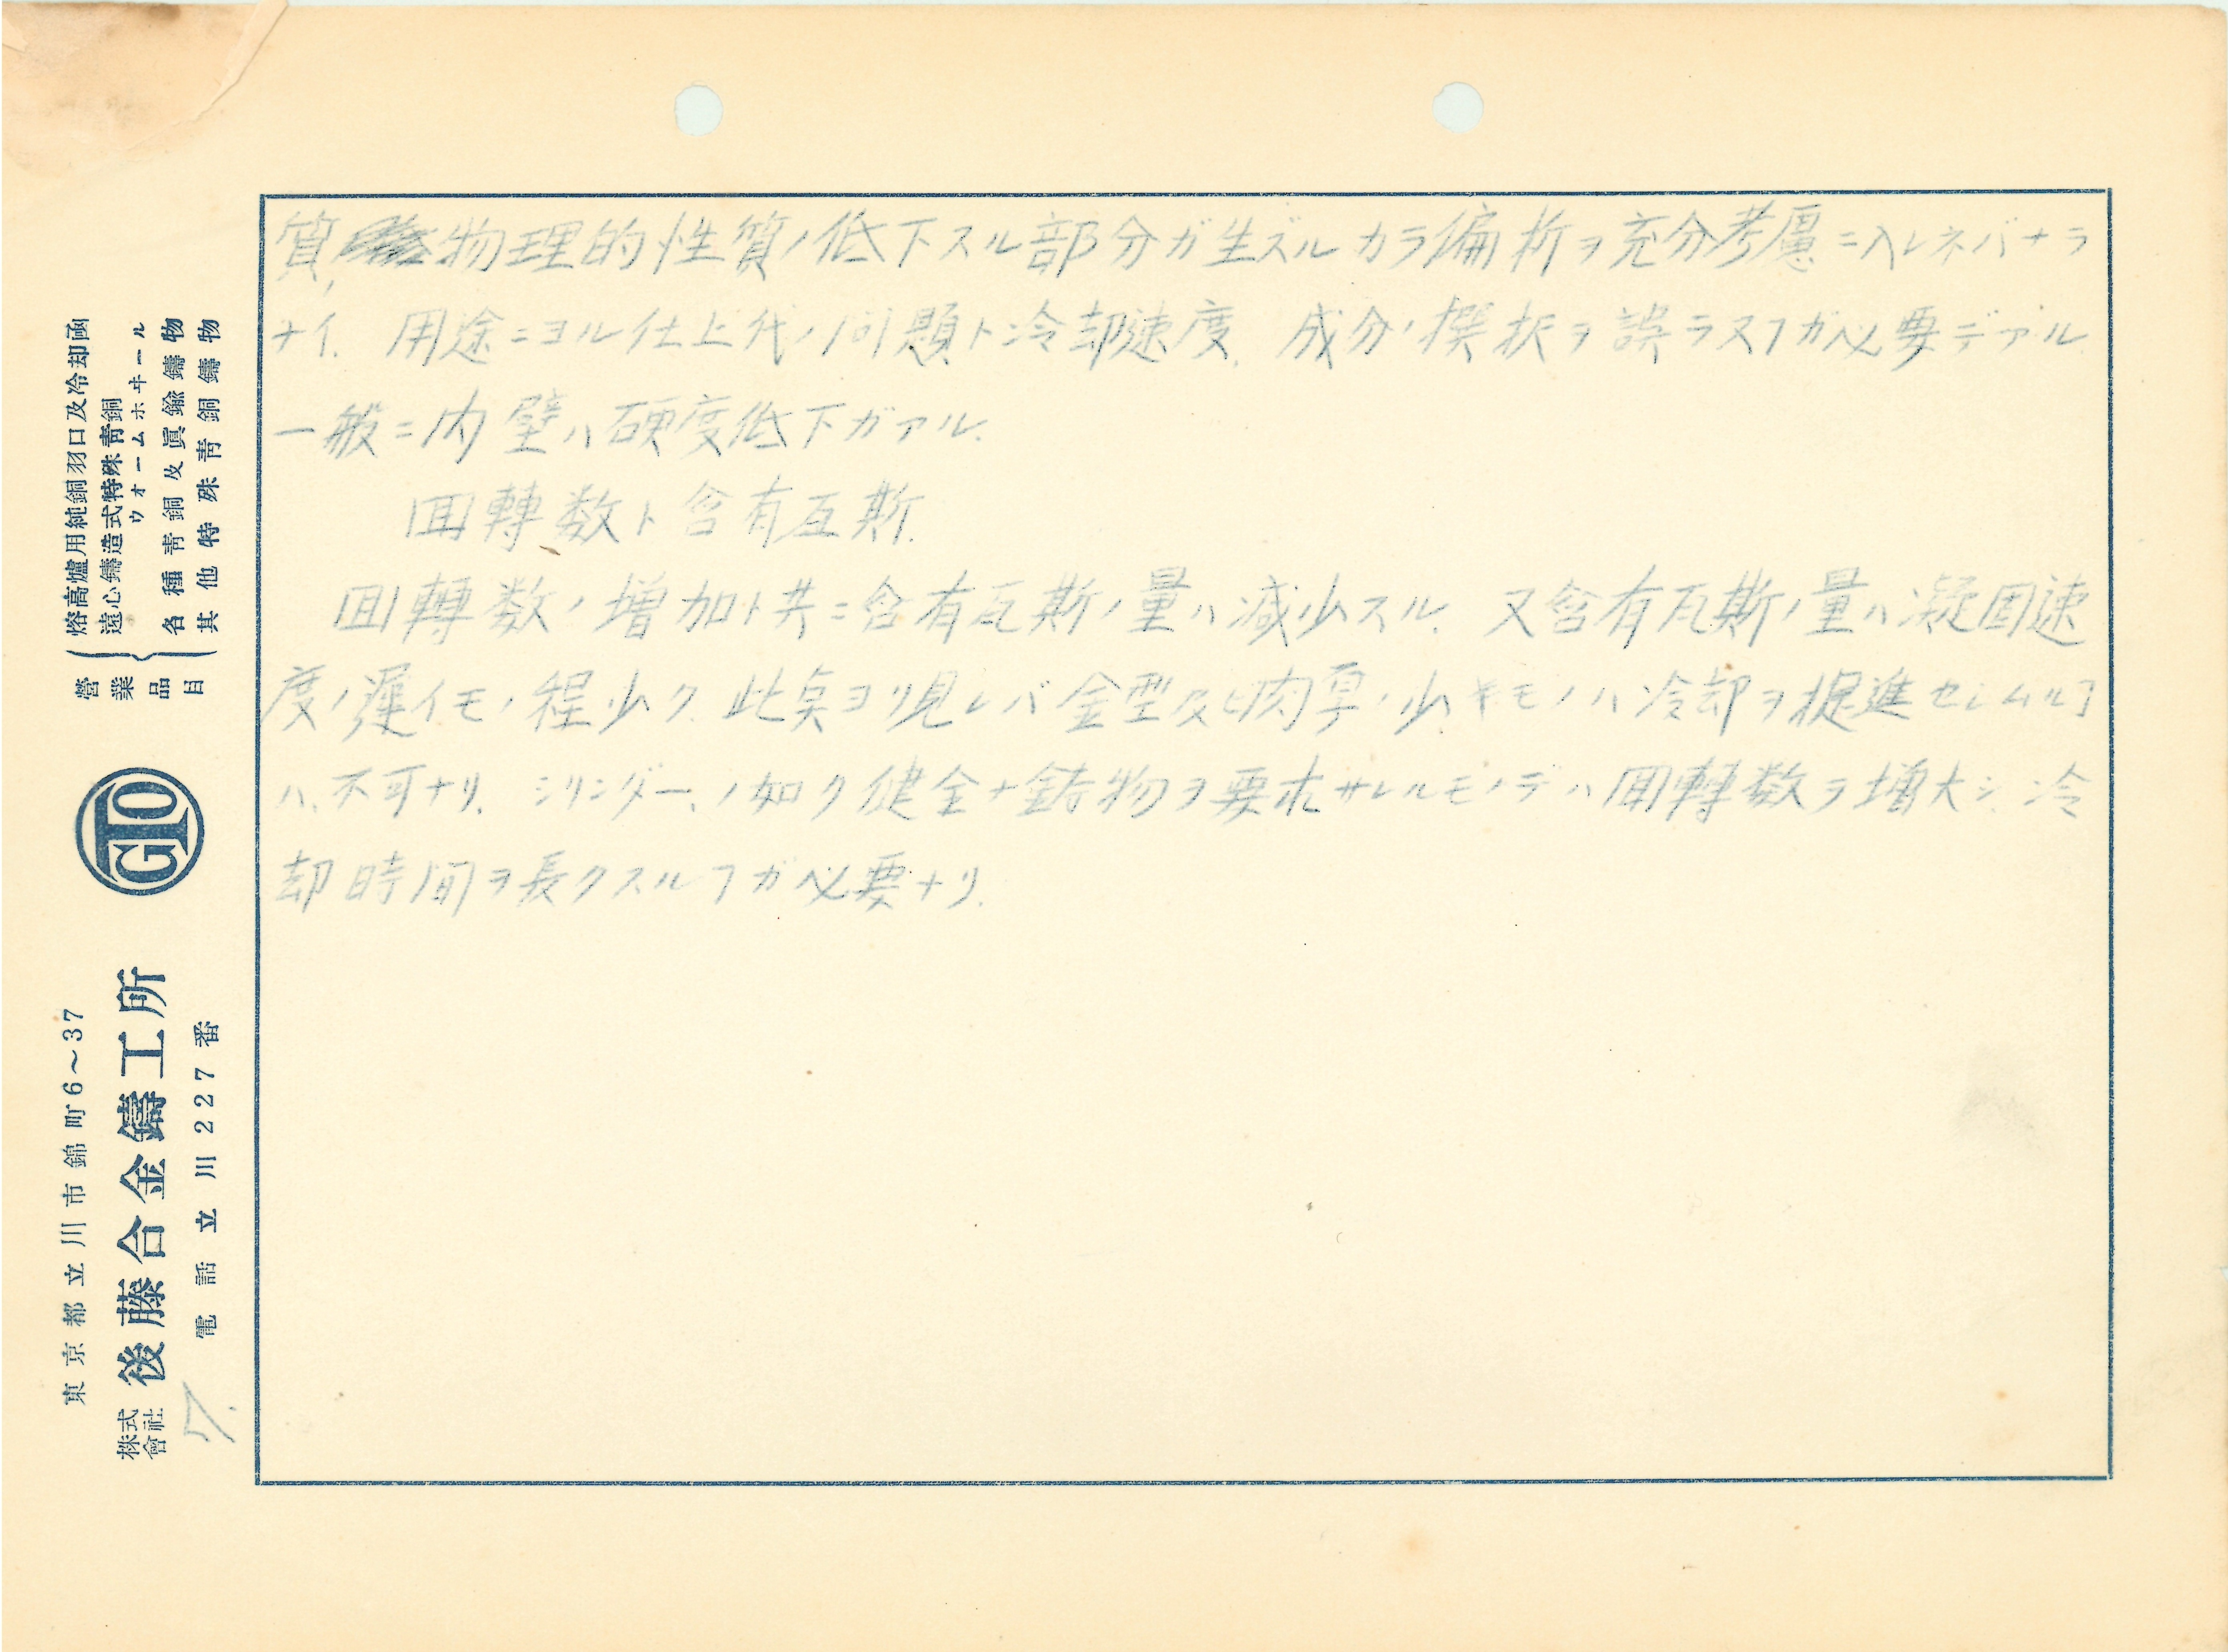 質、物理的性質ノ低下スル部分ガ生ズルカラ偏析ヲ充分考慮ニ入レネバナラ
ナイ. 用途ニヨル仕上代ノ問題ト冷却速度. 成分ノ撰択ヲ誤ラヌヿガ必要デアル
一般ニ内壁ハ硬度低下ガアル.
回轉数ト含有瓦斯.
回轉数ノ増加ト共ニ含有瓦斯ノ量ハ減少スル. 又含有瓦斯ノ量ハ凝固速
度ノ遅イモノ程少ク. 此点ヨリ見レバ金型及ビ肉厚ノ少キモノハ冷却ヲ促進セシムルヿ
ハ.不可ナリ. シリンダー.ノ如ク健全ナ鋳物ヲ要求サレルモノデハ回轉数ヲ増大シ. 冷
却時間ヲ長クスルヿガ必要ナリ.
東京都立川市錦町6～37
株式會社 後藤合金鑄工所
電話立川227番
7.
GTO
營業品目
熔高爐用純銅羽口及冷却函
遠心鑄造式特殊青銅
ウオームホヰール
各種青銅及眞鍮鑄物
其他特殊青銅鑄物